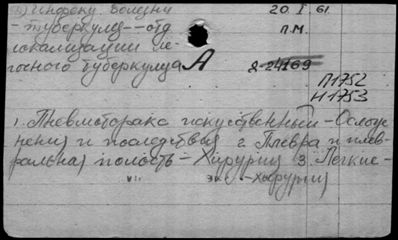 5) Инфекц. болезни
20. I. 61
- туберкулез - отд
П.М.
локализации ле-
гочного туберкулеза А
2-24169
П1752
Н1753
1. Пневмоторакс искусственный - Ослож
нения и последствия 2 Плевра и плев-
ральная полость - Хирургия 3. Легкие -
- Хирургия